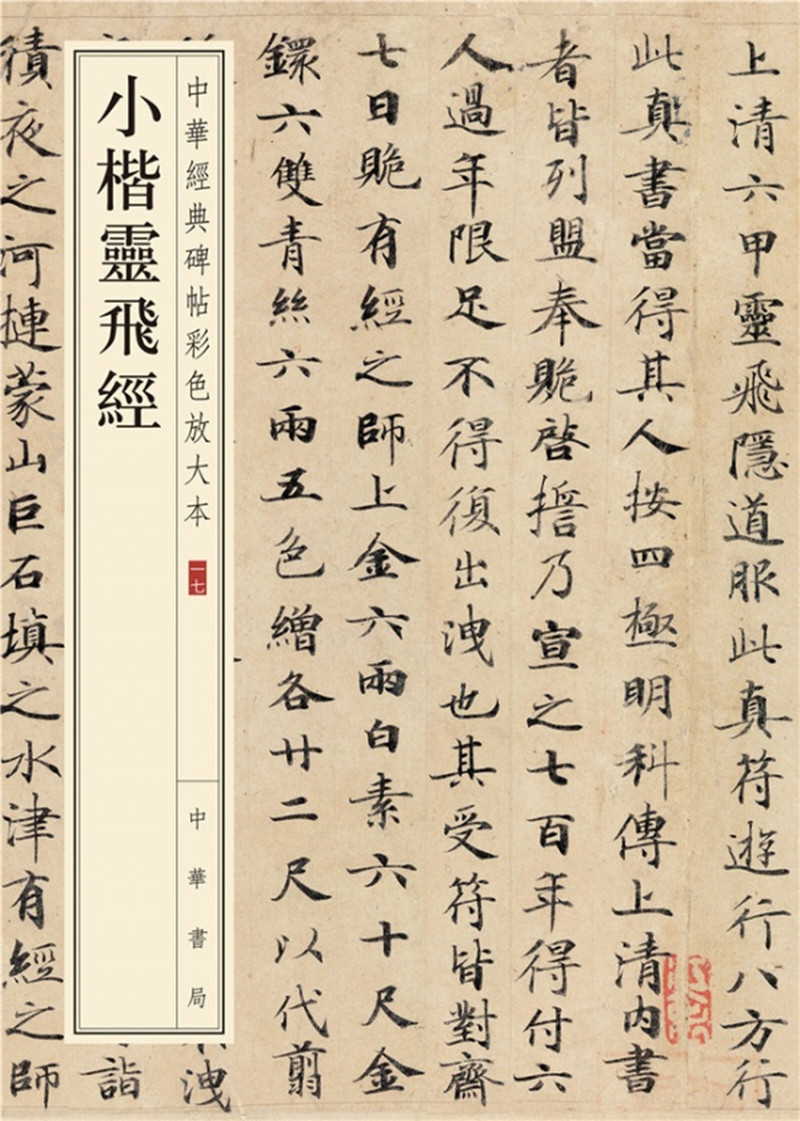 上清六甲靈飛隱道服此真符遊行八方行
此真書當得其人按四極明科傳上清內書
者皆列盟奉贈啓擔乃宣之七百年得付六
人過年限足不得復出洩也其受符皆對齋
七日贈有經之師上金六兩白素六十尺金
鐶六雙青絲六兩五色繒各廿二尺以代翦
中華經典碑帖彩色放大本
一七
中華書局
小楷靈飛經
洩
詣
積夜之河摙蒙山巨石填之水津有經之師